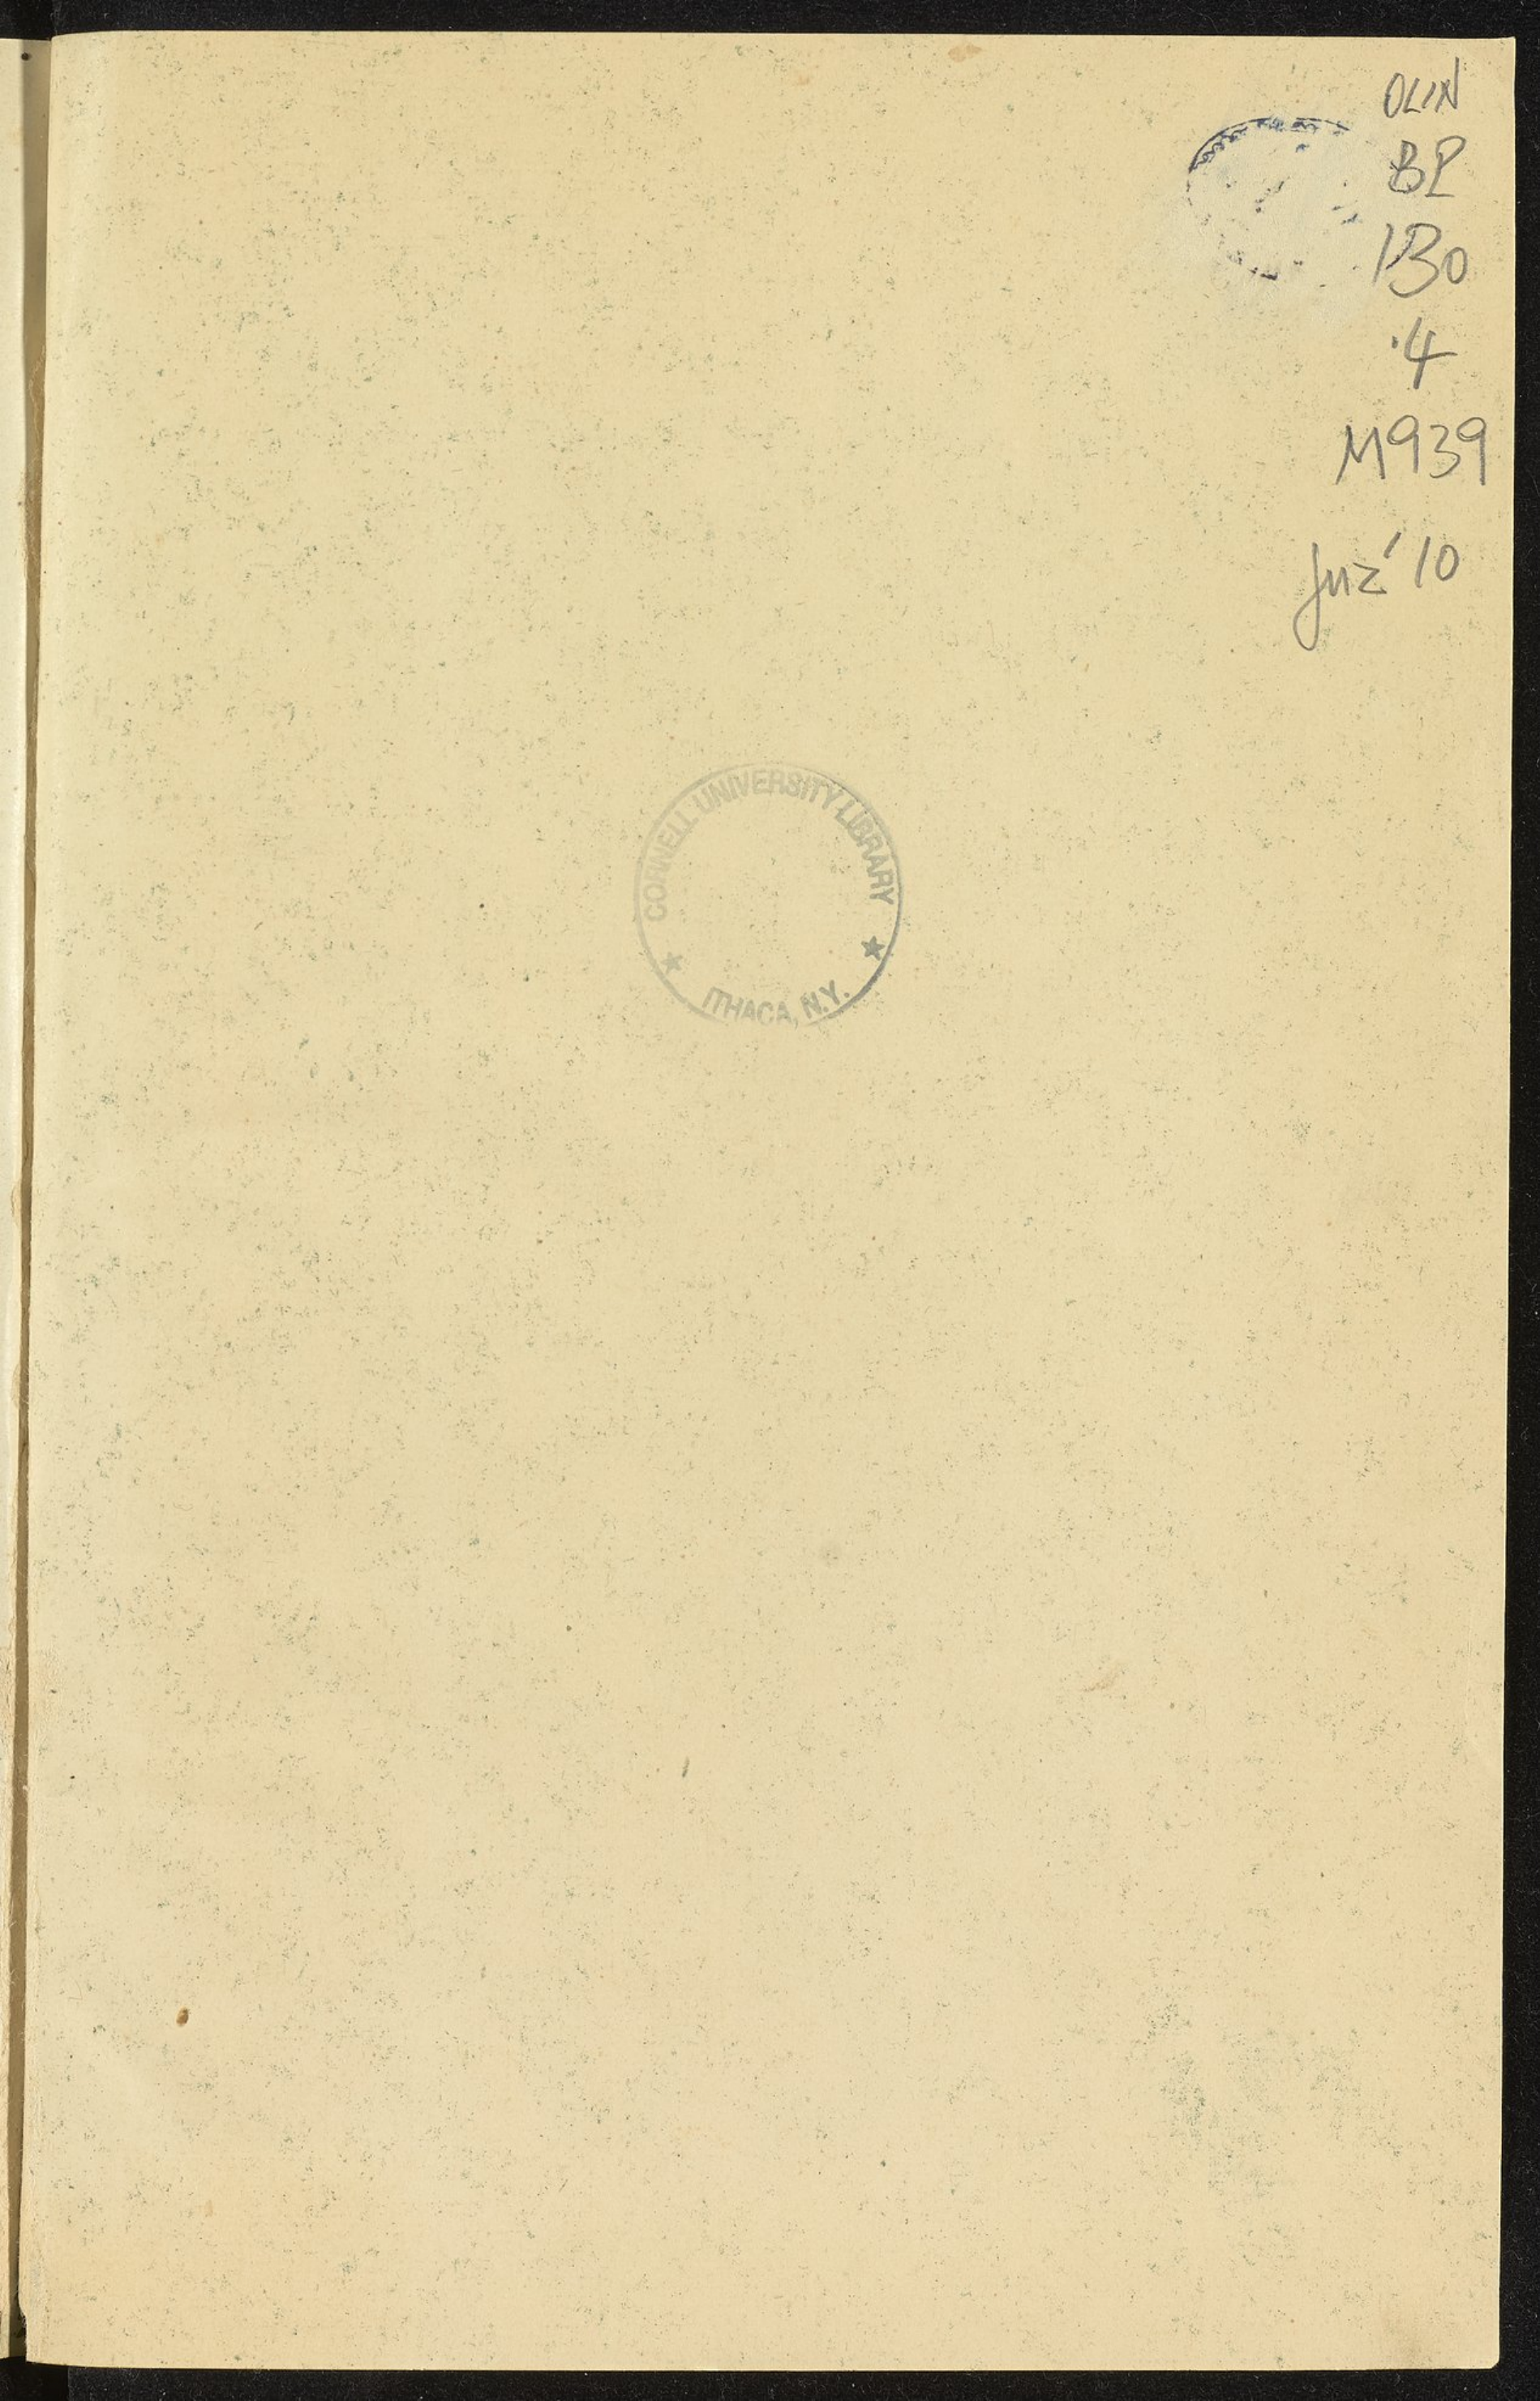 OLIN
BP
130
.4
M939
Juz' 10
CORNELL UNIVERSITY LIBRARY
ITHACA, N.Y.